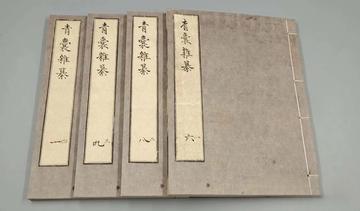 青囊雜纂
六
青囊雜纂
八
青囊雜纂
九
青囊雜纂
一